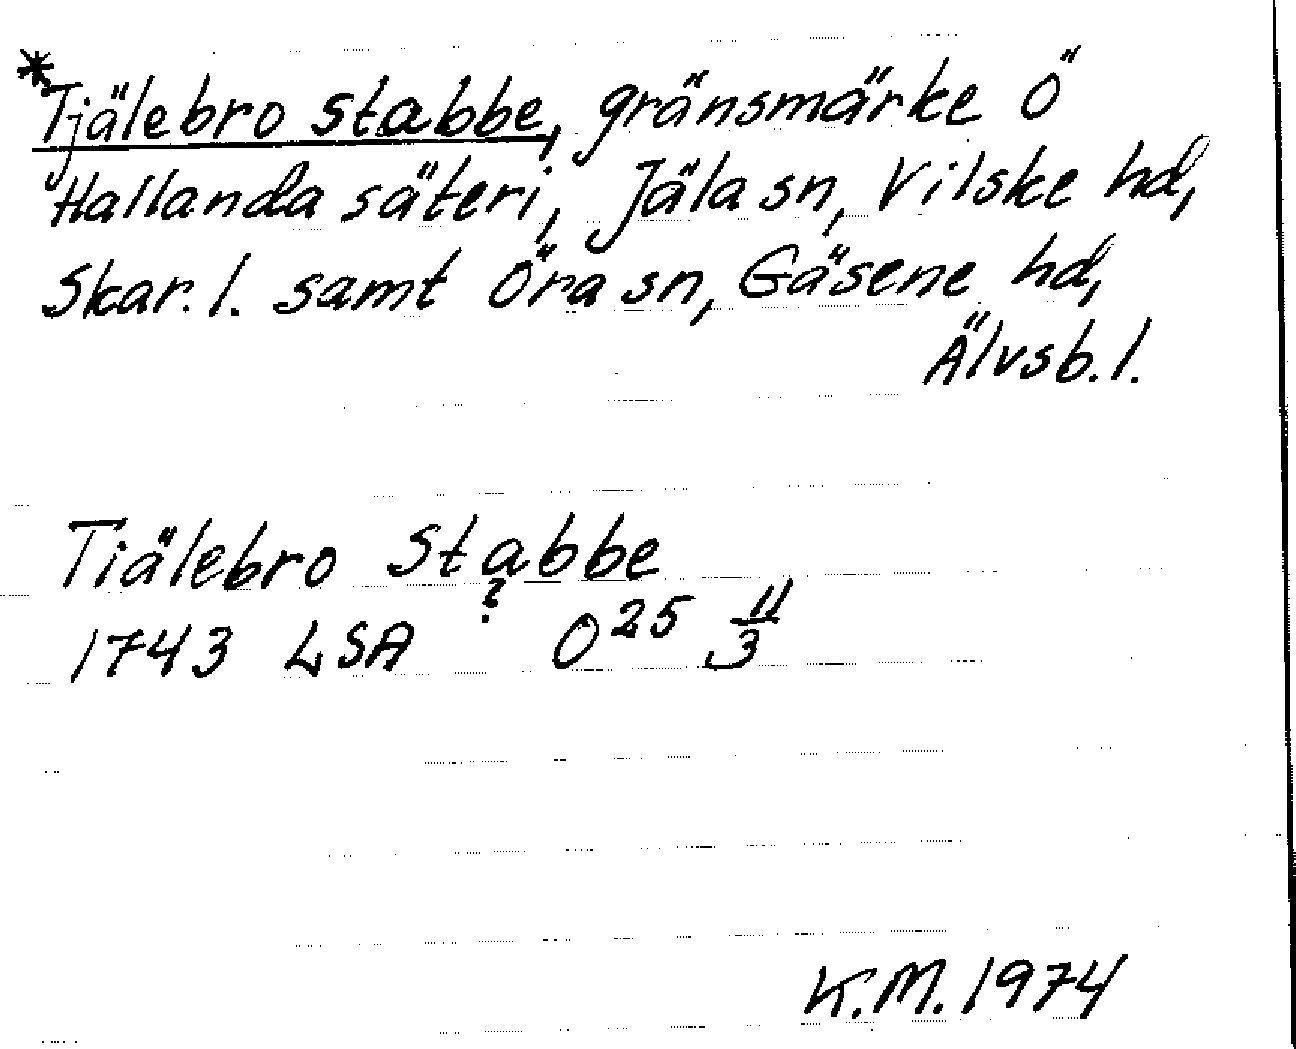 *Tjälebro stabbe, gränsmärke Ö
Hallanda säteri, Jäla sn, Vilske hd,
Skar. l. samt Öra sn, Gäsene hd,
Älvsb. l.
Tiälebro Stabbe
?
1743 LSA O25 11/3
K.M. 1974